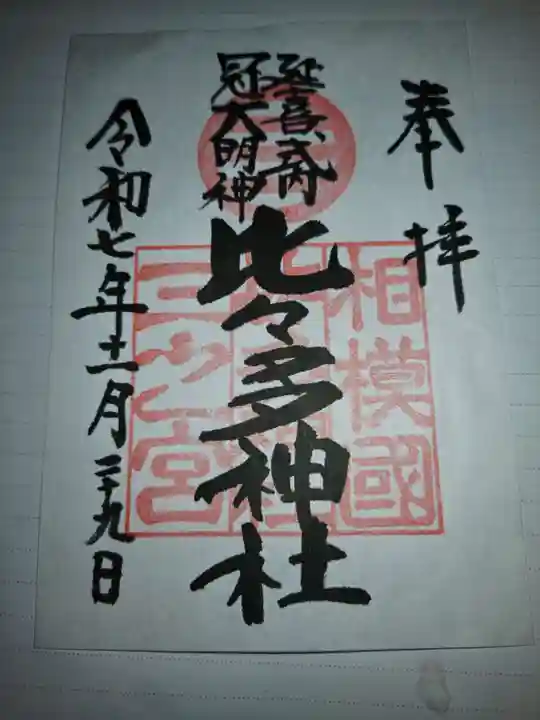 奉拝
延喜式内
冠大明神
比々多神社
相模國
三之宮
令和七年十一月二十九日